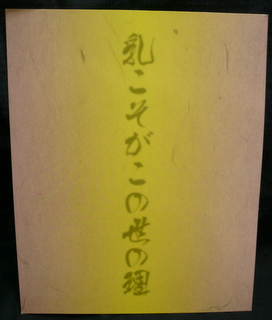 乳こそがこの世の理